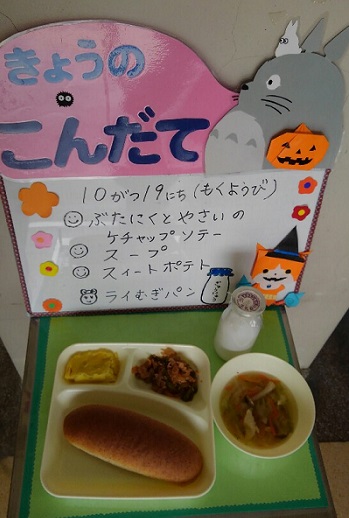 きょうの
こんだて
10がつ19にち(もくようび)
ぶたにくとやさいの
ケチャップソテー
スープ
スィートポテト
ライむぎパン